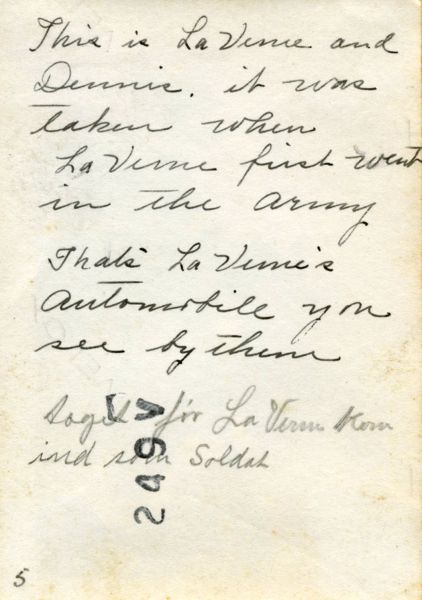 This is LaVerne and
Dennis. it was
taken when
LaVerne first went
in the army
Thats LaVerne's
Automobile you
see by them
taget før LaVerne kom
ind som Soldat
249V
5